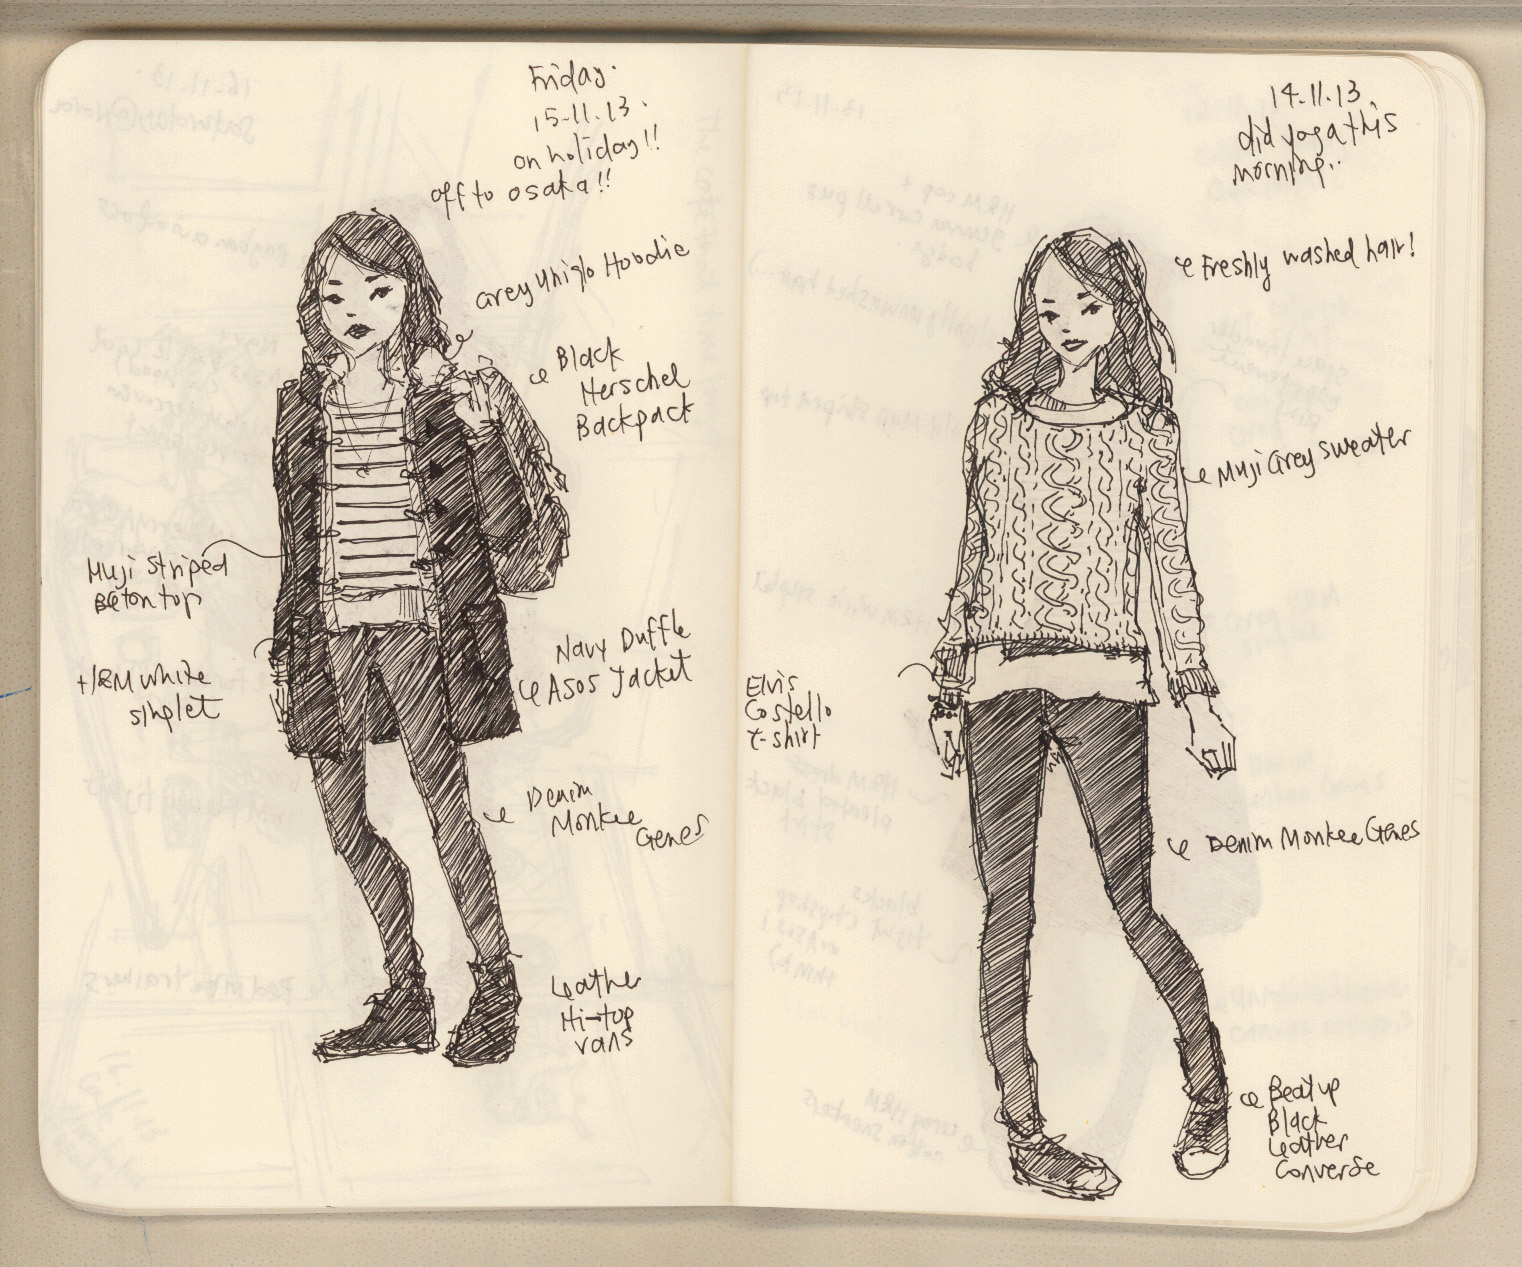 Friday.
15-11.13.
on holiday!!
off to osaka!!
Grey Uniqlo Hoodie
Black
Herschel
Backpack
Muji striped
Beton top
H&M white
singlet
Navy Duffle
ASOS Jacket
Denim
Monkee
Genes
Leather
Hi-top
vans
14.11.13.
did yoga this
morning..
Freshly washed hair!
Muji Grey sweater
Elvis
Costello
t-shirt
Denim Monkee Genes
Beat up
Black
Leather
Converse